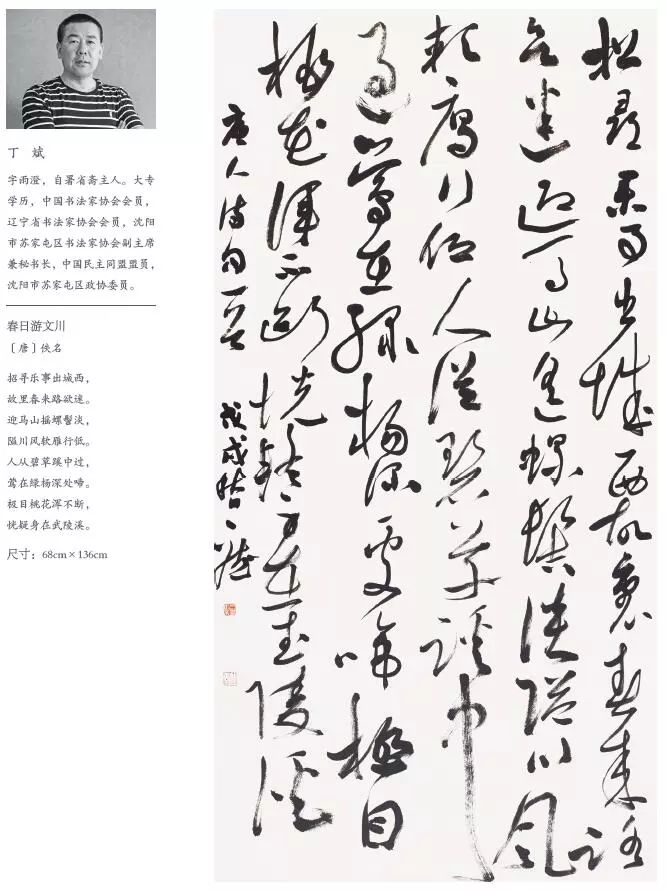 丁 斌
字雨澄，自署省斋主人。大专
学历，中国书法家协会会员，
辽宁省书法家协会会员，沈阳
市苏家屯区书法家协会副主席
兼秘书长，中国民主同盟盟员，
沈阳市苏家屯区政协委员。
春日游文川
〔唐〕佚名
招寻乐事出城西，
故里春来路欲迷。
迎马山摇螺髻淡，
隘川风软雁行低。
人从碧草蹊中过，
莺在绿杨深处啼。
极目桃花浑不断，
恍疑身在武陵溪。
尺寸：68cm×136cm
招尋樂事出城西故里春来路
欲迷迎马山遥螺髻淡隘川風
軟雁行低人從碧草蹊中
過莺在绿楊深處啼極目
桃花渾不斷恍疑身在武陵溪
唐人诗句一首 戊戌